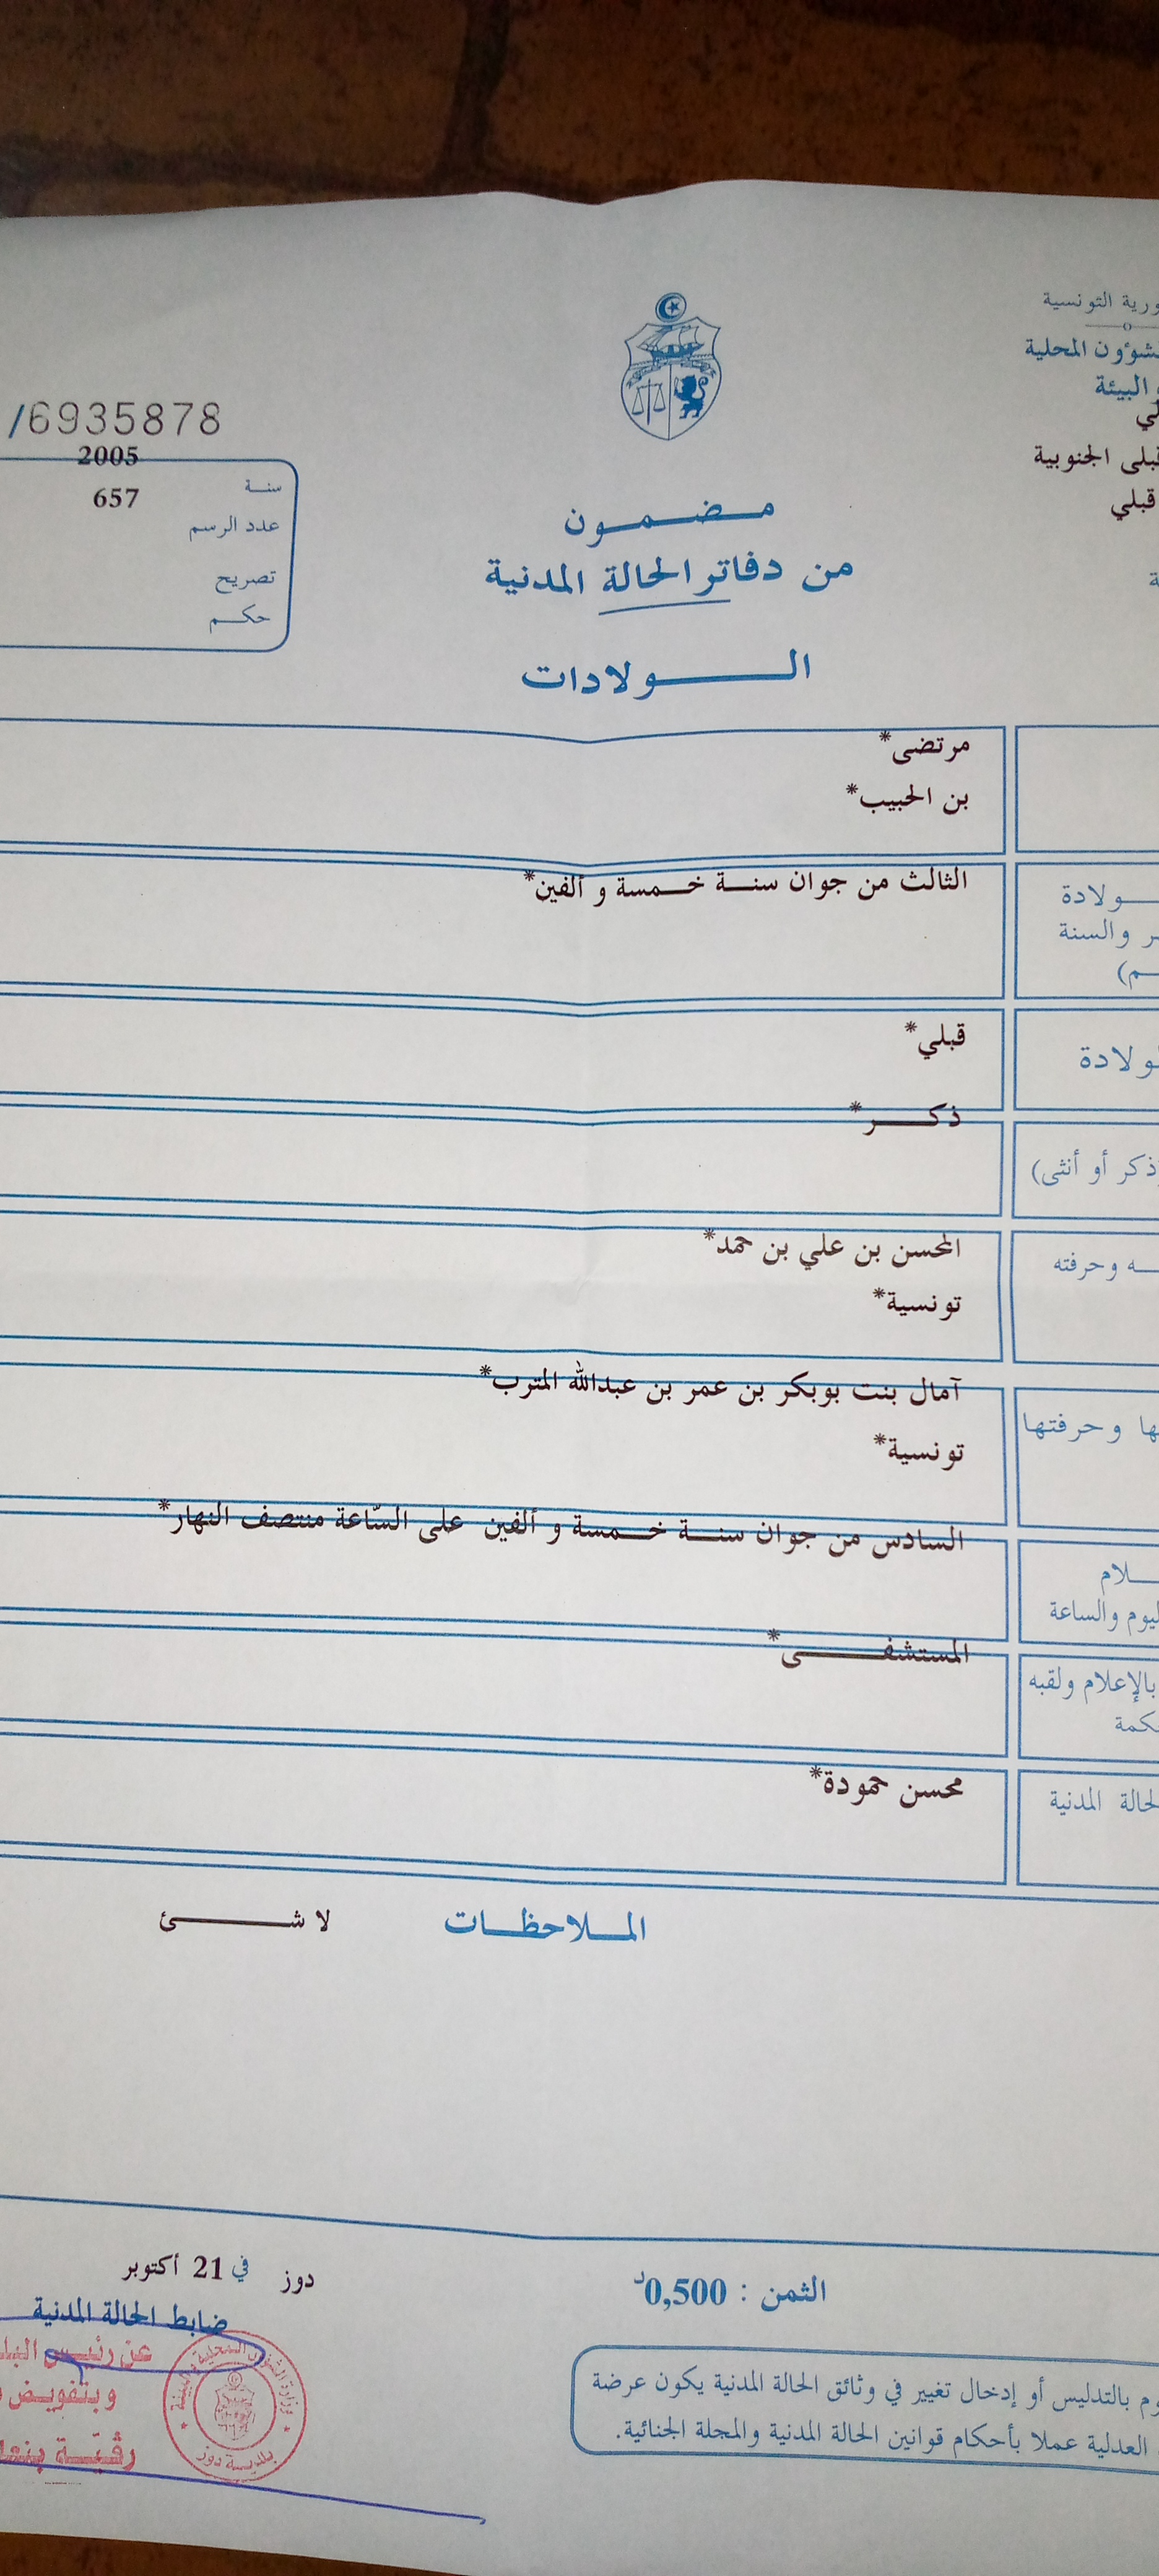 التونسية
المحلية
البيئة
الجنوبية
قبلي
/6935878
2005
سنة 657
عدد الرسم
تصريح
حكم
مضمون
من دفاتر الحالة المدنية
الولادات
مرتضى*
بن الحبيب*
الثالث من جوان سنة خمسة و ألفين*
والسنة
قبلي*
ذكر*
ذكر أو أنثى)
المحسن بن علي بن حمد*
وحرفته
تونسية*
آمال بنت بوبكر بن عمر بن عبدالله المترب*
وحرفتها
تونسية*
السادس من جوان سنة خمسة و ألفين على السّاعة منتصف النهار*
والساعة
المستشفى*
بالإعلام ولقبه
محسن حمودة*
الحالة المدنية
الملاحظات لا شئ
دوز في 21 أكتوبر
الثمن : 0,500د
ضابط الحالة المدنية
عن رئيس
وبتفويض
رقيّة
وزارة الشؤون المحلية والبيئة
بلدية دوز
بالتدليس أو إدخال تغيير في وثائق الحالة المدنية يكون عرضة
العدلية عملا بأحكام قوانين الحالة المدنية والمجلة الجنائية.